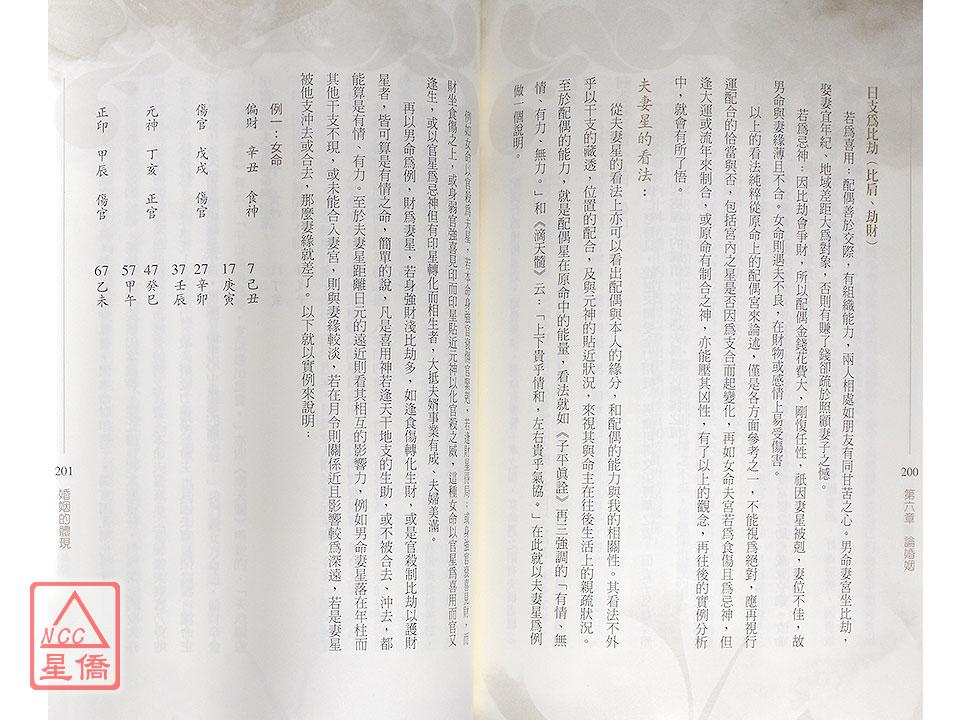 日支爲比劫（比肩、劫財）
若爲喜用：配偶善於交際，有組織能力，兩人相處如朋友有同甘苦之心。男命妻宮坐比劫，
娶妻宜年紀、地域差距大爲對象，否則有賺了錢卻疏於照顧妻子之憾。
若爲忌神：因比劫會爭財，所以配偶金錢花費大，剛愎任性，祇因妻星被剋，妻位不佳，故
男命與妻緣薄且不合。女命則遇夫不良，在財物或感情上易受傷害。
以上的看法純粹從原命上的配偶宮來論述，僅是各方面參考之一，不能視爲絕對，應再視行
運配合的恰當與否，包括宮內之星是否因爲支合而起變化，再如女命夫宮若爲食傷且爲忌神，但
逢大運或流年來制合，或原命有制合之神，亦能壓其凶性，有了以上的觀念，再往後的實例分析
中，就會有所了悟。
夫妻星的看法：
從夫妻星的看法上亦可以看出配偶與本人的緣分，和配偶的能力與我的相關性。其看法不外
乎以干支的藏透，位置的配合，及與元神的貼近狀況，來視其與命主在往後生活上的親疏狀況。
至於配偶的能力，就是配偶星在原命中的能量，看法就如《子平眞詮》再三強調的「有情、無
情、有力、無力。」和《滴天髓》云：「上下貴乎情和，左右貴乎氣協。」在此就以夫妻星爲例
做一個說明。
200
第六章 論婚姻
例如女命以官殺爲夫星，若本命身強官衰傷官緊剋，若逢財星得局；或身強官衰喜見財，而
財坐食傷之上，或身弱官強喜見印而印星貼近元神以化官殺之威，這種女命以官星爲喜用而官又
逢生，或以官星爲忌神但有印星轉化而相生者，大抵夫婿事業有成、夫婦美滿。
再以男命爲例，財爲妻星，若身強財淺比劫多，如逢食傷轉化生財，或是官殺制比劫以護財
星者，皆可算是有情之命，簡單的說，凡是喜用神若逢天干地支的生助，或不被合去、沖去，都
能算是有情、有力。至於夫妻星距離日元的遠近則看其相互的影響力，例如男命妻星落在年柱而
其他干支不現，或未能合入妻宮，則與妻緣較淡，若在月令則關係近且影響較爲深遠，若是妻星
被他支沖去或合去，那麼妻緣就差了。以下就以實例來說明：
例一：女命
偏財 辛丑 食神
傷官 戊戌 傷官
元神 丁亥 正官
正印 甲辰 傷官
7己丑
17庚寅
27辛卯
37壬辰
47癸巳
57甲午
67乙未
201
婚姻的體現
NCC
星僑